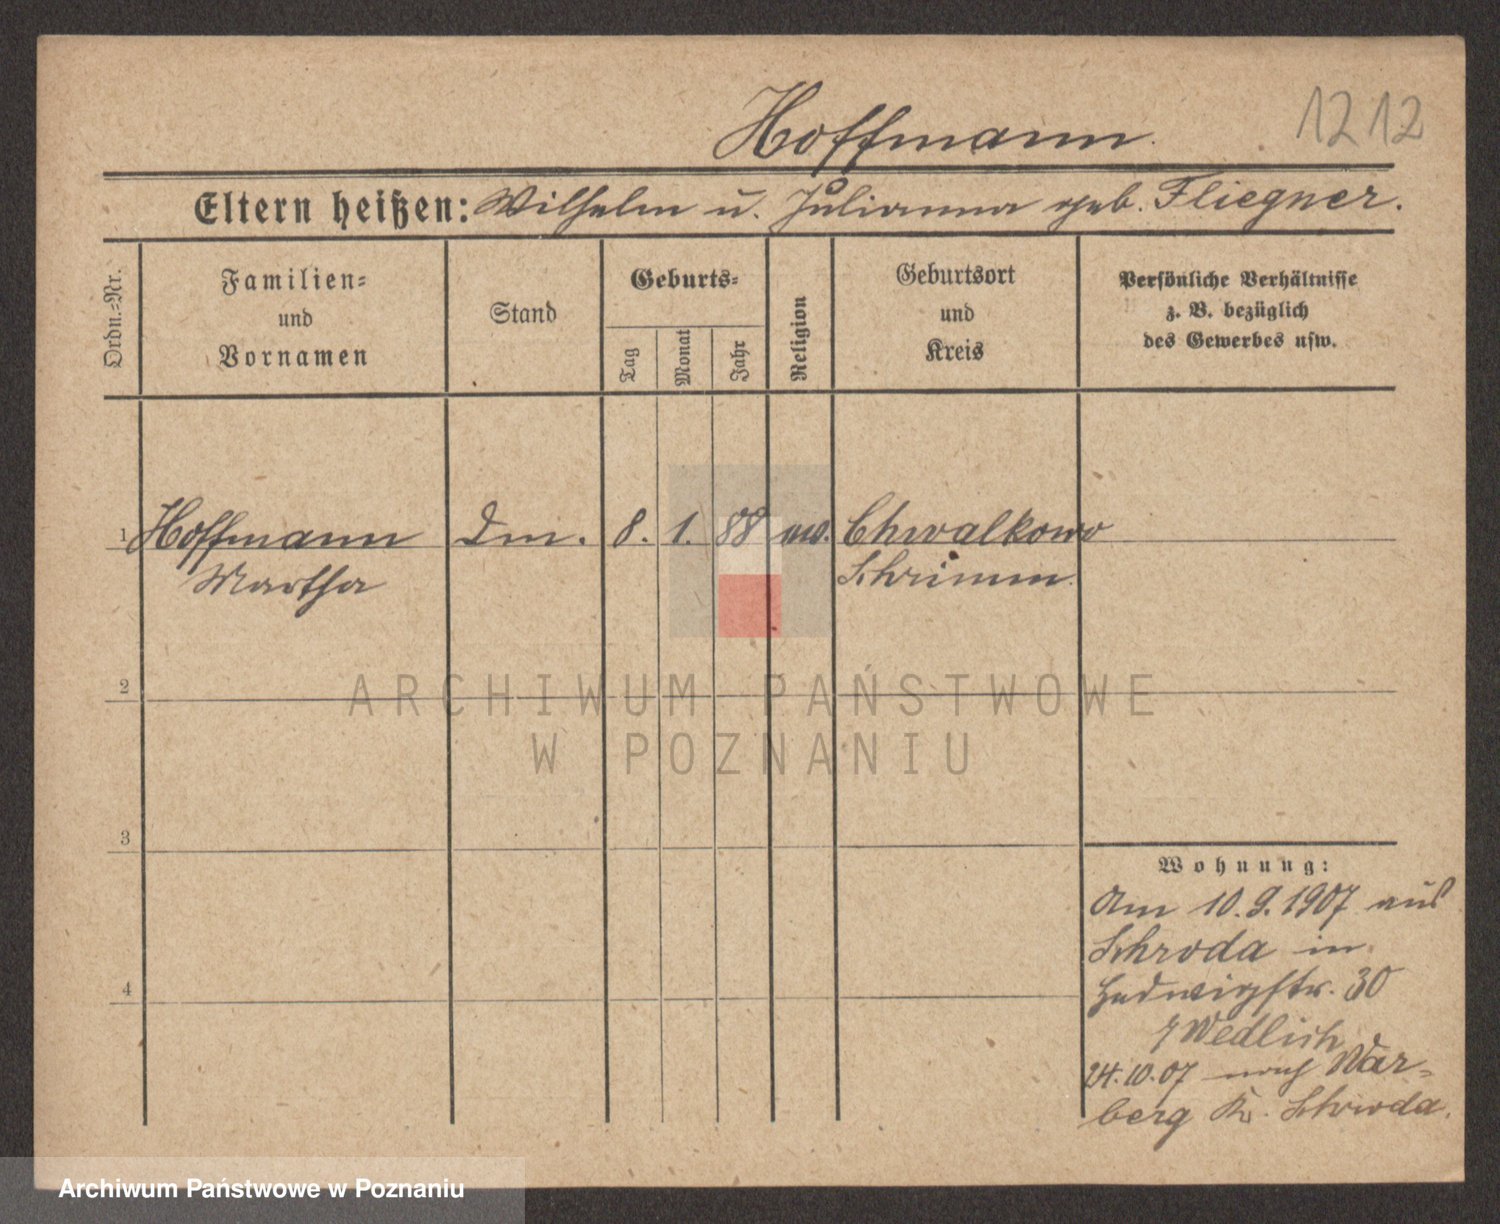 Hoffmann
1212
Eltern heißen: Wilhelm u. Julianna geb. Fliegner.
Ordn.-Nr.
Familien-
und
Vornamen
Stand
Geburts-
Tag
Monat
Jahr
Religion
Geburtsort
und
Kreis
Persönliche Verhältnisse
z. B. bezüglich
des Gewerbes usw.
1 Hoffmann Dm. 8. 1. 88 ev. Chwalkowo
Martha Schrimm.
2
ARCHIWUM PAŃSTWOWE
W POZNANIU
3
4
Wohnung:
Am 10.9.1907 aus
Schroda in
Hedwigstr. 30
Wedlich
24.10.07 nach War-
berg Kr. Schroda.
Archiwum Państwowe w Poznaniu